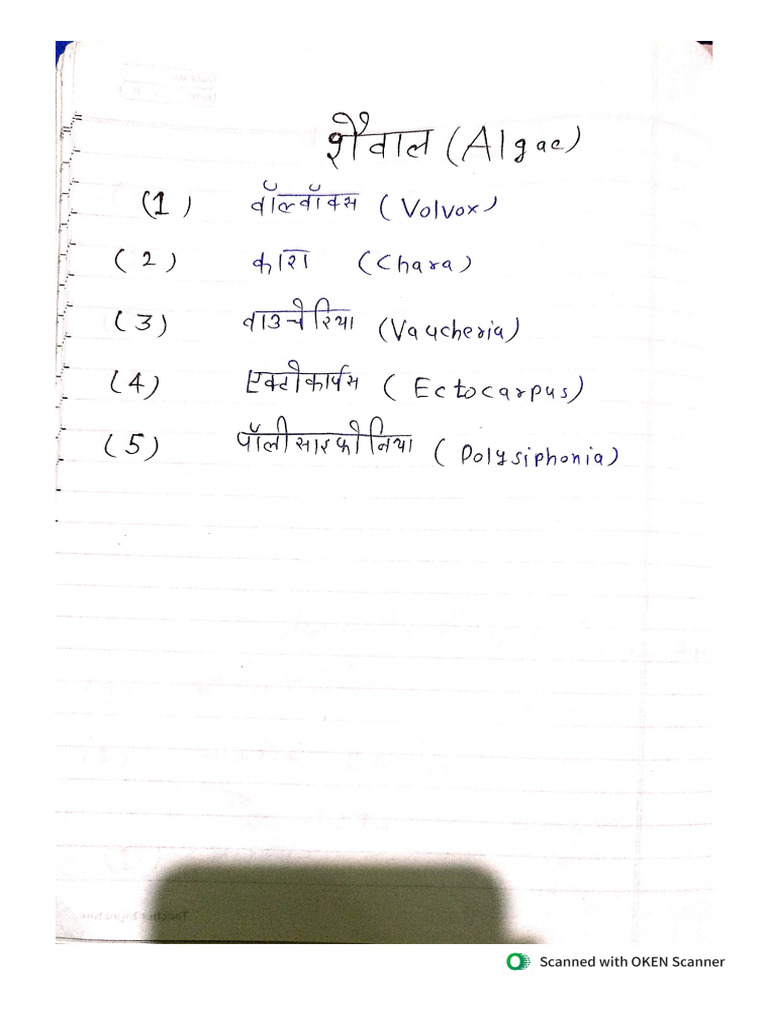 शैवाल (Algae)
(1) वॉल्वॉक्स (Volvox)
(2) कारा (Chara)
(3) वाउचेरिया (Vaucheria)
(4) एक्टोकार्पस (Ectocarpus)
(5) पॉलीसाइफोनिया (Polysiphonia)
Scanned with OKEN Scanner